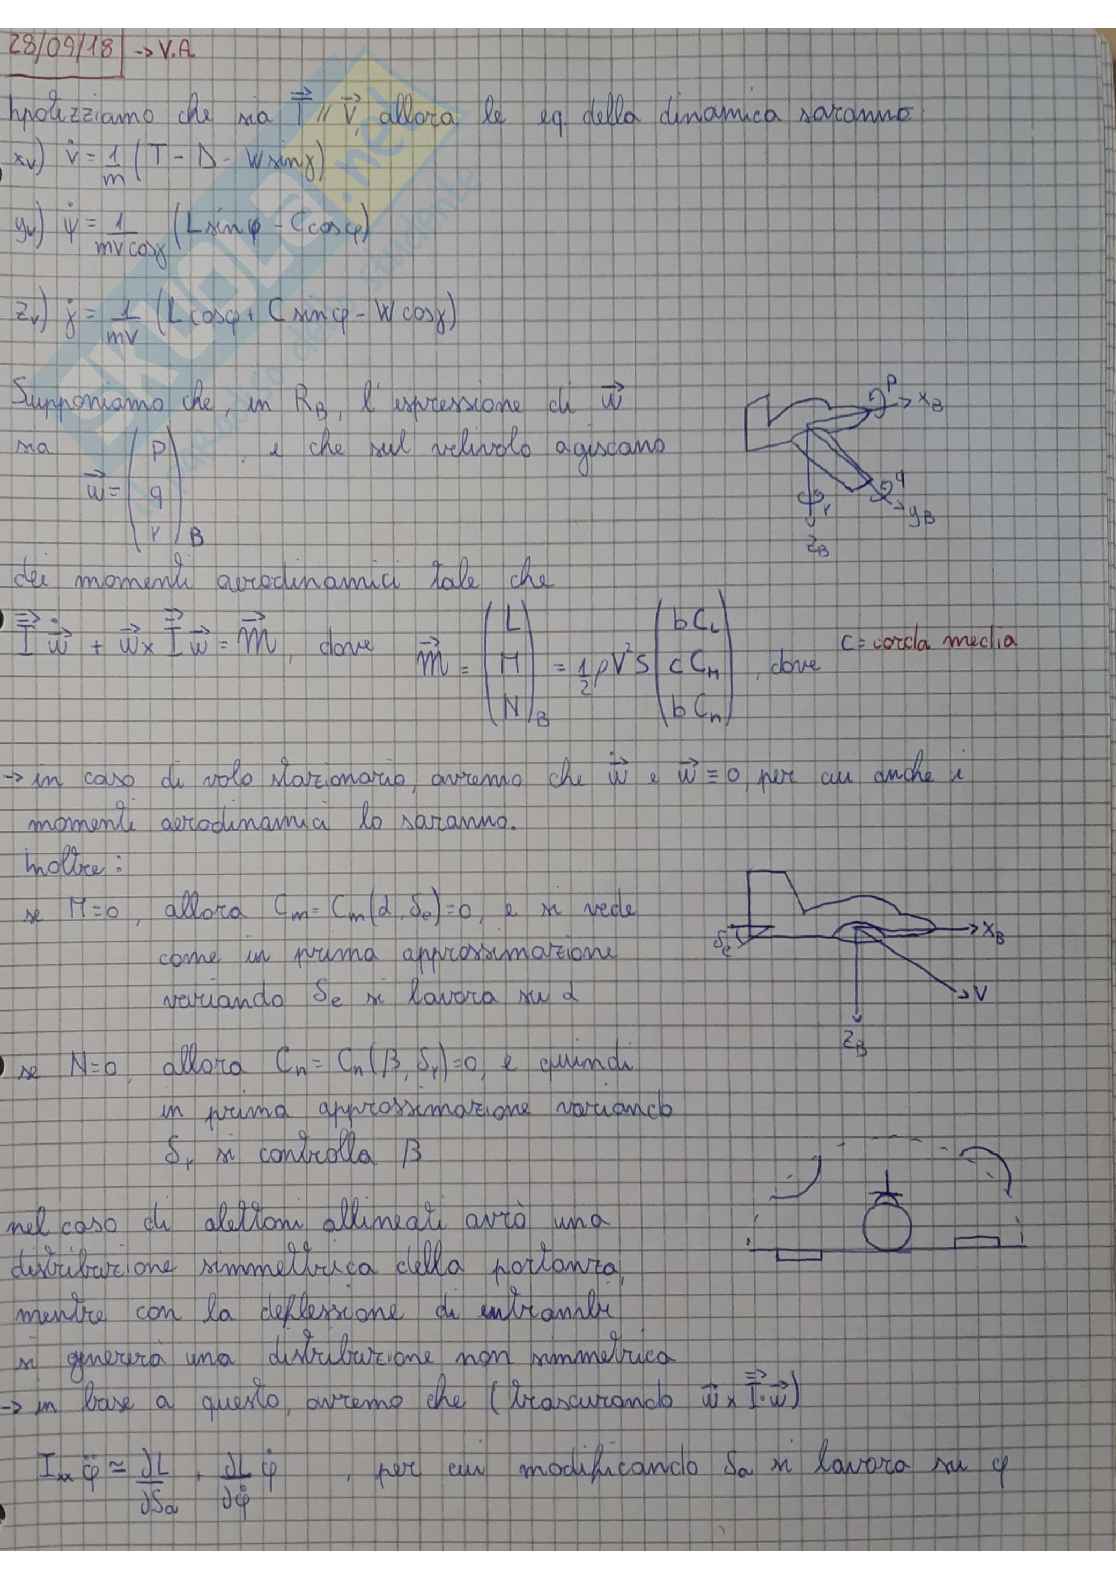 28/09/18 → V.A.
Ipotizziamo che sia T⃗ // V⃗, allora le eq della dinamica saranno:
xv) V̇ = 1/m (T - D - W sinγ)
yv) ψ̇ = 1/(mV cosγ) (L sinφ - C cosφ)
zv) γ̇ = 1/(mV) (L cosφ + C sinφ - W cosγ)
Supponiamo che, in RB, l'espressione di w⃗
sia w⃗ = (p q r)B e che sul velivolo agiscano
p xB
q yB
r
zB
dei momenti aerodinamici tale che
I w⃗̇ + w⃗ x I w⃗ = m⃗, dove m⃗ = (L M N)B = 1/2 ρV²S (bCL cCM bCn), dove c = corda media
→ in caso di volo stazionario, avremo che w⃗̇ e w⃗ = 0, per cui anche i
momenti aerodinamici lo saranno.
Inoltre:
se M=0, allora Cm = Cm(α, δe)=0, e si vede
come in prima approssimazione
variando δe si lavora su α
δe xB
V
zB
se N=0, allora Cn = Cn(β, δr)=0, e quindi
in prima approssimazione variando
δr si controlla β
nel caso di alettoni allineati avrò una
distribuzione simmettrica della portanza,
mentre con la deflessione di entrambi
si genererà una distribuzione non simmetrica
→ in base a questo, avremo che (trascurando w⃗ x I·w⃗)
Ixx φ̈ ≃ ∂L/∂δa + ∂L/∂φ̇ φ̇ , per cui modificando δa si lavora su φ
SKUOLA.net